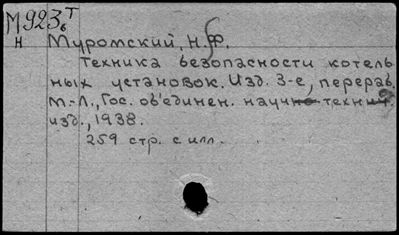 М923₆ᵀ
Н
Муромский, Н.Ф.
Техника безопасности котель
ных установок. Изд. 3-е, перераб.
М.-Л., Гос. об'единен. научно-технич.
изд., 1938.
259 стр. с илл.